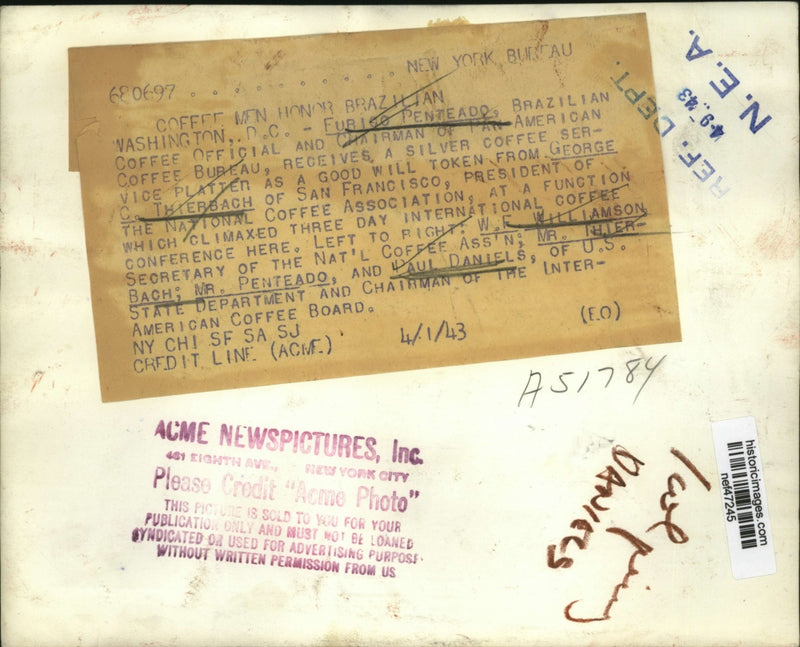 680697 . . . . . . . . . . . NEW YORK BUREAU
COFFEE MEN HONOR BRAZILIAN
WASHINGTON, D.C. - EURICO PENTEADO, BRAZILIAN
COFFEE OFFICIAL AND CHAIRMAN OF PAN AMERICAN
COFFEE BUREAU, RECEIVES A SILVER COFFEE SER-
VICE PLATTER AS A GOOD WILL TOKEN FROM GEORGE
C. THIERBACH OF SAN FRANCISCO, PRESIDENT OF
THE NATIONAL COFFEE ASSOCIATION, AT A FUNCTION
WHICH CLIMAXED THREE DAY INTERNATIONAL COFFEE
CONFERENCE HERE. LEFT TO RIGHT: W.F. WILLIAMSON
SECRETARY OF THE NAT'L COFFEE ASS'N; MR. THIER-
BACH; MR. PENTEADO, AND PAUL DANIELS, OF U.S.
STATE DEPARTMENT AND CHAIRMAN OF THE INTER-
AMERICAN COFFEE BOARD.
NY CHI SF SA SJ
CREDIT LINE (ACME) 4/1/43 (EO)
REF. DEPT.
4-9-'43
N.E.A.
A51784
ACME NEWSPICTURES, Inc.
461 EIGHTH AVE., NEW YORK CITY
Please Credit "Acme Photo"
THIS PICTURE IS SOLD TO YOU FOR YOUR
PUBLICATION ONLY AND MUST NOT BE LOANED
SYNDICATED OR USED FOR ADVERTISING PURPOSE
WITHOUT WRITTEN PERMISSION FROM US
DANIELS
historicimages.com
nef47245